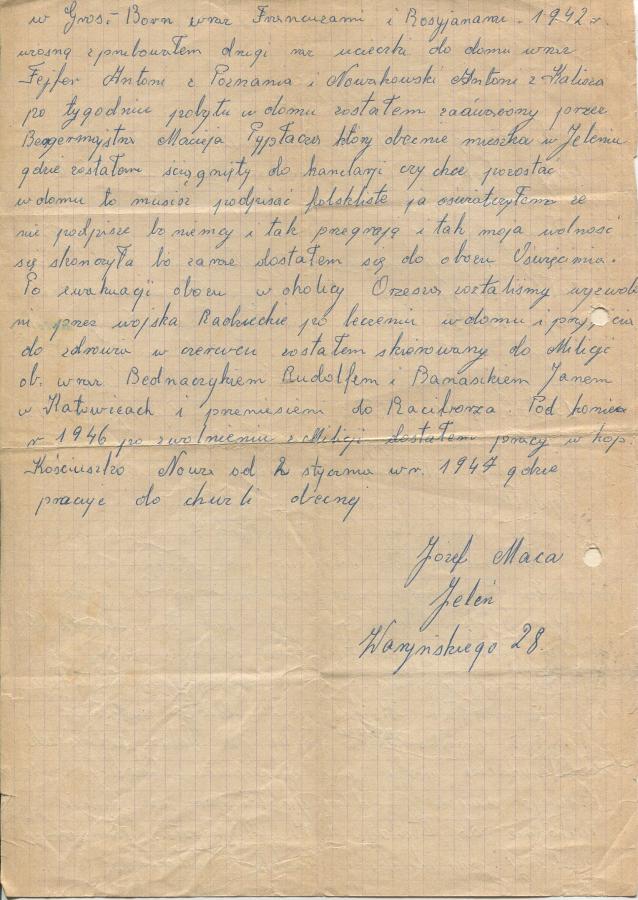 w Gros-Born wraz Francuzami i Rosyjanami. 1942 r.
wrosną spróbowałem drugi raz ucieczki do domu wraz
Fejfer Antoni z Poznania i Nowakowski Antoni z Kalisza
po tygodniu pobytu w domu zostałem zaawarzony przez
Bergermajstra Macieja Pypłacza który obecnie mieszka w Jeleniu
gdzie zostałem ściągnięty do kanclarji czy chce pozostać
w domu to musisz podpisać folksliste ja oświatczyłem że
nie podpisze bo niemcy i tak pregrają i tak moja wolność
się skończyła bo zaraz dostałem się do obozu Oświęcimia.
Po ewakuacji obozu w okolicy Orzesza zostaliśmy wyzwole
ni przez wojska Radzieckie po leczeniu w domu i przyjścia
do zdrowia w czerwcu zostałem skierowany do Milicji
ob. wraz Bednarzykiem Rudolfem i Banasikiem Janem
w Katowicach i preniesieni do Raciborza. Pod koniec
r 1946 po zwolnieniu z Milicji dostałem pracy w kop.
Kościuszko Nowa od 2 stycznia w r. 1947 gdzie
pracuje do chwili obecnej
Józef Maca
Jeleń
Waryńskiego 28.